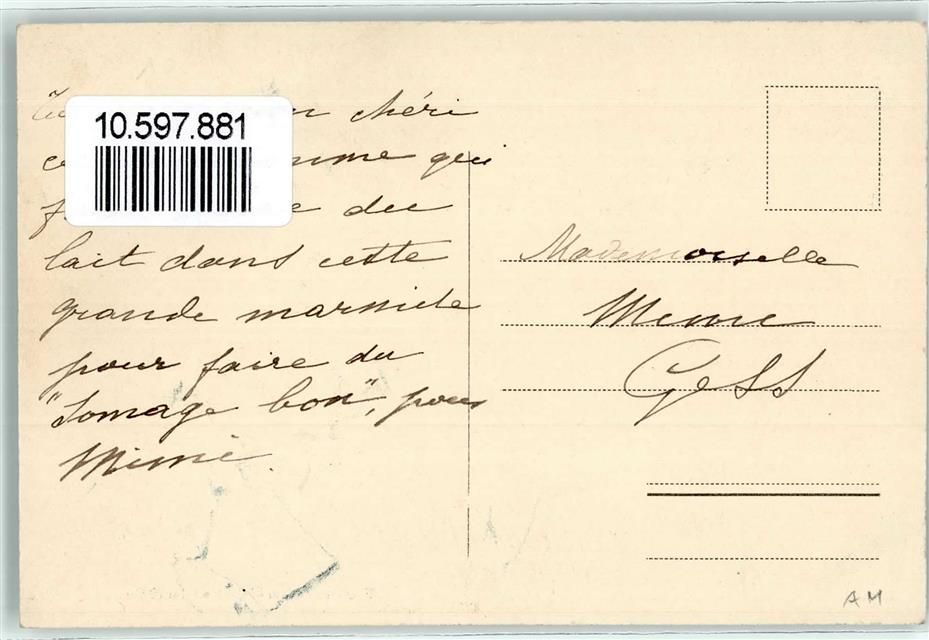 10.597.881
chéri
qui
du
lait dans cette
grande marmite
pour faire du
"Somage bon", pour
Mimi.
Mademoiselle
Mimie
Gess
AM